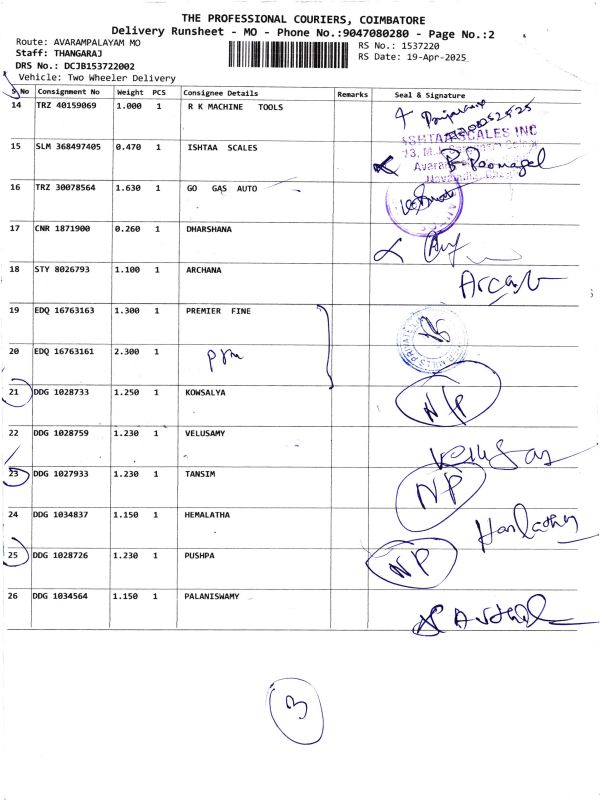 THE PROFESSIONAL COURIERS, COIMBATORE
Delivery Runsheet - MO - Phone No.:9047080280 - Page No.:2
Route: AVARAMPALAYAM MO
Staff: THANGARAJ
DRS No.: DCJB153722002
Vehicle: Two Wheeler Delivery
RS No.: 1537220
RS Date: 19-Apr-2025
S No Consignment No Weight PCS Consignee Details Remarks Seal & Signature
14 TRZ 40159069 1.000 1 R K MACHINE TOOLS
15 SLM 368497405 0.470 1 ISHTAA SCALES
ISHTAA SCALES INC
16 TRZ 30078564 1.630 1 GO GAS AUTO
17 CNR 1871900 0.260 1 DHARSHANA
18 STY 8026793 1.100 1 ARCHANA
19 EDQ 16763163 1.300 1 PREMIER FINE
20 EDQ 16763161 2.300 1
21 DDG 1028733 1.250 1 KOWSALYA N/P
22 DDG 1028759 1.230 1 VELUSAMY
23 DDG 1027933 1.230 1 TANSIM NP
24 DDG 1034837 1.150 1 HEMALATHA
25 DDG 1028726 1.230 1 PUSHPA NP
26 DDG 1034564 1.150 1 PALANISWAMY
3